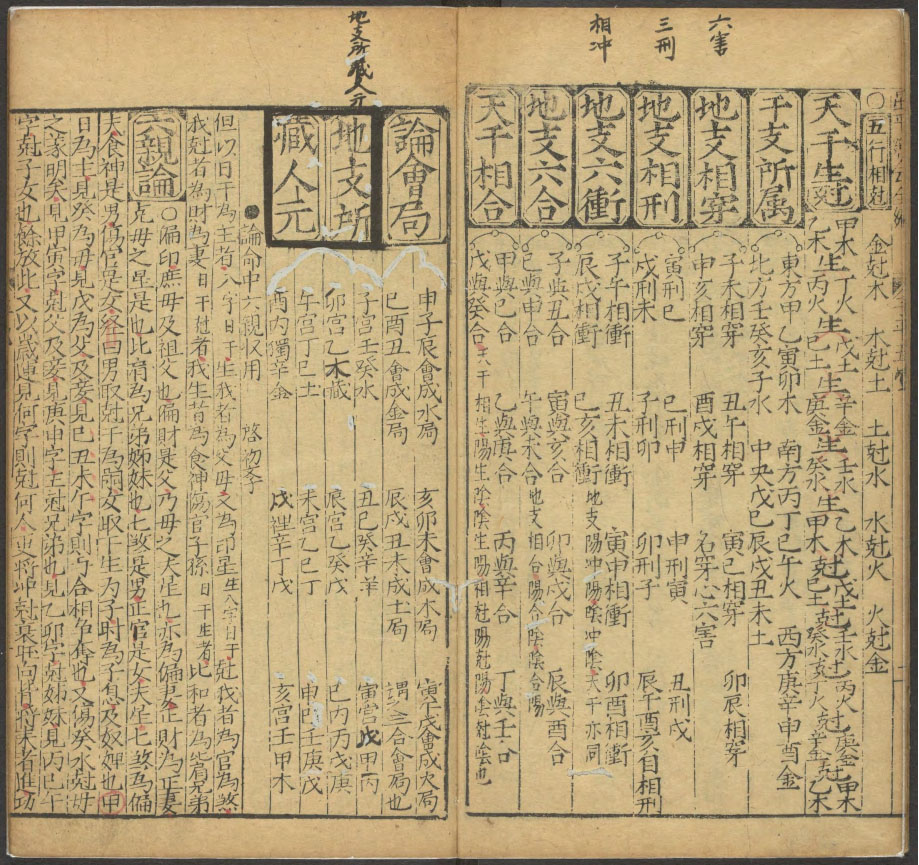 六害
三刑
相冲
五行相尅 金尅木 木尅土 土尅水 水尅火 火尅金
天干生尅
甲木生丁火生戊土生辛金生壬水生乙木尅戊土尅壬水尅丙火尅庚金尅甲木
乙木生丙火生己土生庚金生癸水生甲木尅己土尅癸水尅丁火尅辛金尅乙木
干支所属
東方甲乙寅卯木 南方丙丁巳午火 西方庚辛申酉金
北方壬癸亥子水 中央戊己辰戌丑未土
地支相穿
子未相穿 丑午相穿 寅巳相穿 卯辰相穿
申亥相穿 酉戌相穿 名穿心六害
地支相刑
寅刑巳 巳刑申 申刑寅 丑刑戌
戌刑未 子刑卯 卯刑子 辰午酉亥自相刑
地支六衝
子午相衝 丑未相衝 寅申相衝 卯酉相衝
辰戌相衝 巳亥相衝 地支陽冲陽陰冲陰天干亦同
地支六合
子與丑合 寅與亥合 卯與戌合 辰與酉合
巳與申合 午與未合 地支相合陽合陰陰合陽
天干相合
甲與己合 乙與庚合 丙與辛合 丁與壬合
戊與癸合 天干相生陽生陰陰生陽相尅陽尅陽陰尅陰也
地支所藏人元
論會局
申子辰會成水局 亥卯未會成木局 寅午戌會成火局
巳酉丑會成金局 辰戌丑未成土局 謂之三合會局也
地支所藏人元
子宫壬癸水 丑己癸辛 寅宫戊甲丙
卯宫乙木藏 辰宫乙癸戊 巳丙丙戊庚
午宫丁己土 未宫乙己丁 申巳壬庚戊
酉内獨辛金 戌裡辛丁戊 亥宫壬甲木
論命中六親取用 啓幼子
但以日干為主者八字日干生我者為父母又為印星生八字日干尅我者為官為煞
我尅者為財為妻日干尅者我生者為食神傷官子孫日干生者比和者為皆兄弟
六親論
偏印庶母及祖父也偏財是父乃母之夫星也亦為偏妻正財為正妻
尅母之星是也比肩為兄弟姊妹也七煞是男正官是女夫星七煞為偏
夫食神是男傷官是女經曰男取尅干為嗣女取干生為子時為子息及奴婢也甲
日為主見癸為母見戊為父及妾見己丑未午字則与合相争奪也又傷癸水尅母
之篆明矣見甲寅字尅父及妾見庚申字主尅兄弟也見乙卯字尅姊妹見丙巳午
字尅子女也餘放此又以歲運見何字則尅何人更將冲尅衰旺向背